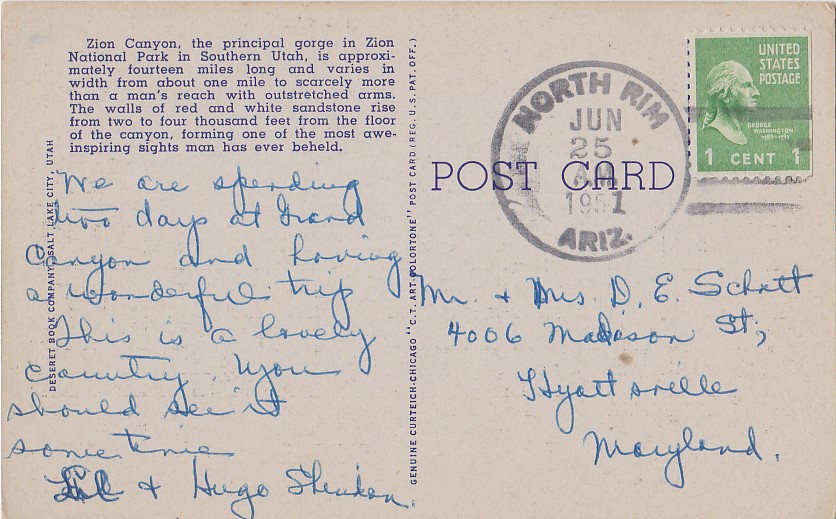 Zion Canyon, the principal gorge in Zion
National Park in Southern Utah, is approxi-
mately fourteen miles long and varies in
width from about one mile to scarcely more
than a man's reach with outstretched arms.
The walls of red and white sandstone rise
from two to four thousand feet from the floor
of the canyon, forming one of the most awe-
inspiring sights man has ever beheld.
We are spending
two days at Grand
Canyon and having
a wonderful trip
This is a lovely
country. You
should see it
sometime
& Hugo
DESERET BOOK COMPANY, SALT LAKE CITY, UTAH
GENUINE CURTEICH-CHICAGO "C.T. ART-COLORTONE" POST CARD (REG. U.S. PAT. OFF.)
POST CARD
NORTH RIM
JUN
25
AM
1951
ARIZ.
UNITED
STATES
POSTAGE
GEORGE
WASHINGTON
1 CENT 1
Mr. & Mrs. D. E. Schutt
4006 Madison St,
Hyattsville
Maryland.